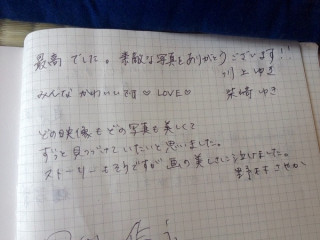 最高でした。素敵な写真をありがとうございます!!
川上ゆき
みんなかわいい ♡ LOVE ♡
柴崎ゆき
どの映像もどの写真も美しくて
ずっと見つづけていたいと思いました。
ストーリーもそうですが画の美しさに泣けました。